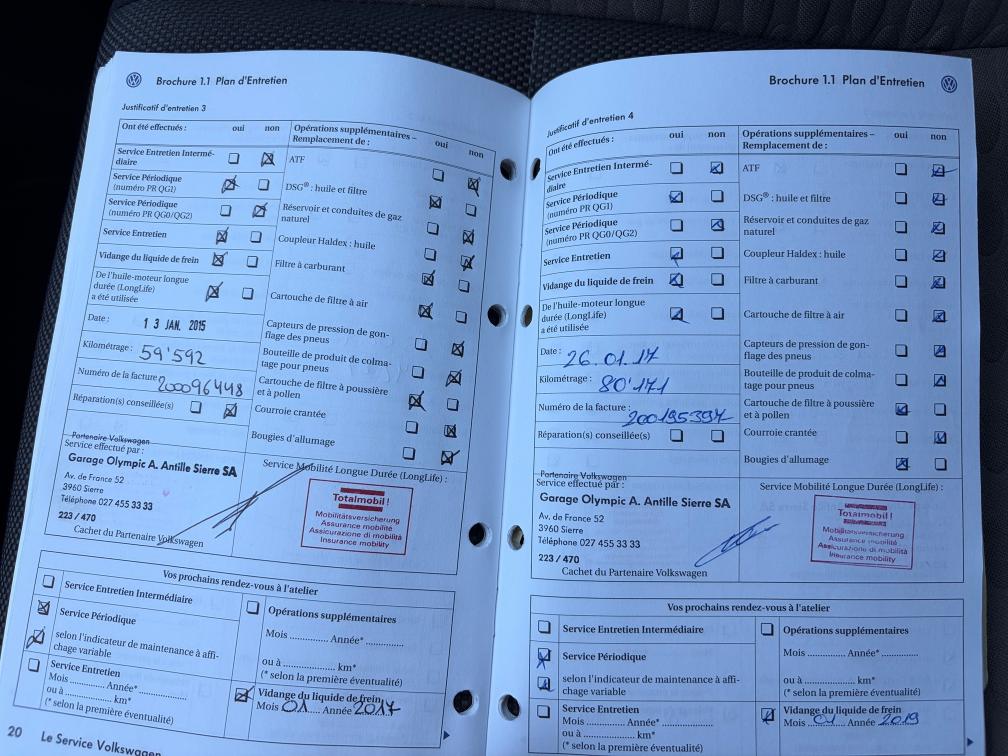 Brochure 1.1 Plan d'Entretien
Justificatif d'entretien 3
Ont été effectués : oui non
Service Entretien Intermé-
diaire
Service Périodique
(numéro PR QG1)
Service Périodique
(numéro PR QG0/QG2)
Service Entretien
Vidange du liquide de frein
De l'huile-moteur longue
durée (LongLife)
a été utilisée
Date : 13 JAN. 2015
Kilométrage : 59'592
Numéro de la facture : 200096448
Réparation(s) conseillée(s)
Opérations supplémentaires –
Remplacement de : oui non
ATF
DSG® : huile et filtre
Réservoir et conduites de gaz
naturel
Coupleur Haldex : huile
Filtre à carburant
Cartouche de filtre à air
Capteurs de pression de gon-
flage des pneus
Bouteille de produit de colma-
tage pour pneus
Cartouche de filtre à poussière
et à pollen
Courroie crantée
Bougies d'allumage
Partenaire Volkswagen
Service effectué par :
Garage Olympic A. Antille Sierre SA
Av. de France 52
3960 Sierre
Téléphone 027 455 33 33
223 / 470
Cachet du Partenaire Volkswagen
Service Mobilité Longue Durée (LongLife) :
Totalmobil !
Mobilitätsversicherung
Assurance mobilité
Assicurazione di mobilità
Insurance mobility
Vos prochains rendez-vous à l'atelier
Service Entretien Intermédiaire
Service Périodique
selon l'indicateur de maintenance à affi-
chage variable
Service Entretien
Mois .............. Année* ..............
ou à .............. km*
(* selon la première éventualité)
Opérations supplémentaires
Mois .............. Année* ..............
ou à .............. km*
(* selon la première éventualité)
Vidange du liquide de frein
Mois 01 Année 2017
20 Le Service Volkswagen
Brochure 1.1 Plan d'Entretien
Justificatif d'entretien 4
Ont été effectués : oui non
Service Entretien Intermé-
diaire
Service Périodique
(numéro PR QG1)
Service Périodique
(numéro PR QG0/QG2)
Service Entretien
Vidange du liquide de frein
De l'huile-moteur longue
durée (LongLife)
a été utilisée
Date : 26.01.17
Kilométrage : 80'171
Numéro de la facture : 200195397
Réparation(s) conseillée(s)
Opérations supplémentaires –
Remplacement de : oui non
ATF
DSG® : huile et filtre
Réservoir et conduites de gaz
naturel
Coupleur Haldex : huile
Filtre à carburant
Cartouche de filtre à air
Capteurs de pression de gon-
flage des pneus
Bouteille de produit de colma-
tage pour pneus
Cartouche de filtre à poussière
et à pollen
Courroie crantée
Bougies d'allumage
Partenaire Volkswagen
Service effectué par :
Garage Olympic A. Antille Sierre SA
Av. de France 52
3960 Sierre
Téléphone 027 455 33 33
223 / 470
Cachet du Partenaire Volkswagen
Service Mobilité Longue Durée (LongLife) :
Totalmobil !
Mobilitätsversicherung
Assurance mobilité
Assicurazione di mobilità
Insurance mobility
Vos prochains rendez-vous à l'atelier
Service Entretien Intermédiaire
Service Périodique
selon l'indicateur de maintenance à affi-
chage variable
Service Entretien
Mois .............. Année* ..............
ou à .............. km*
(* selon la première éventualité)
Opérations supplémentaires
Mois .............. Année* ..............
ou à .............. km*
(* selon la première éventualité)
Vidange du liquide de frein
Mois 01 Année 2019